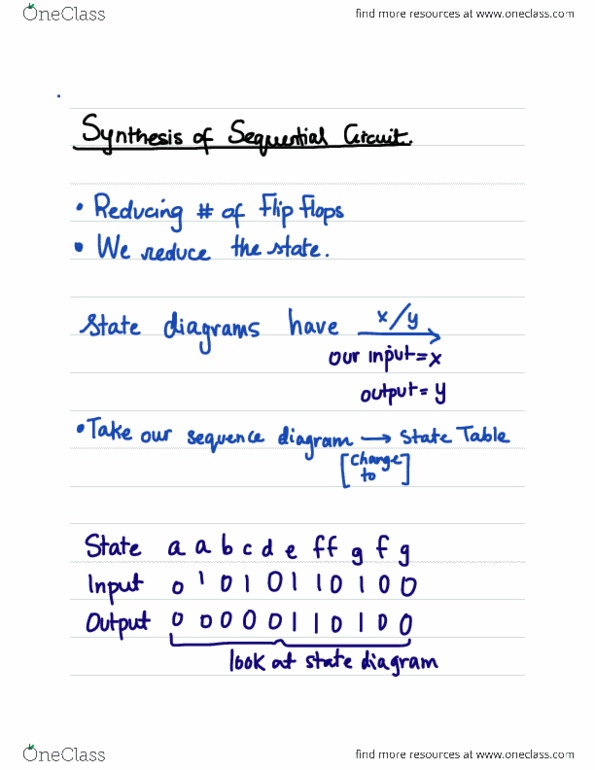 OneClass
find more resources at www.oneclass.com
Synthesis of Sequential Circuit.
• Reducing # of Flip flops
• We reduce the state.
State diagrams have x/y
our input = x
output = y
• Take our sequence diagram → State Table
[change
to]
State a a b c d e f f g f g
Input 0 1 0 1 0 1 1 0 1 0 0
Output 0 0 0 0 0 1 1 0 1 0 0
look at state diagram
OneClass
find more resources at www.oneclass.com